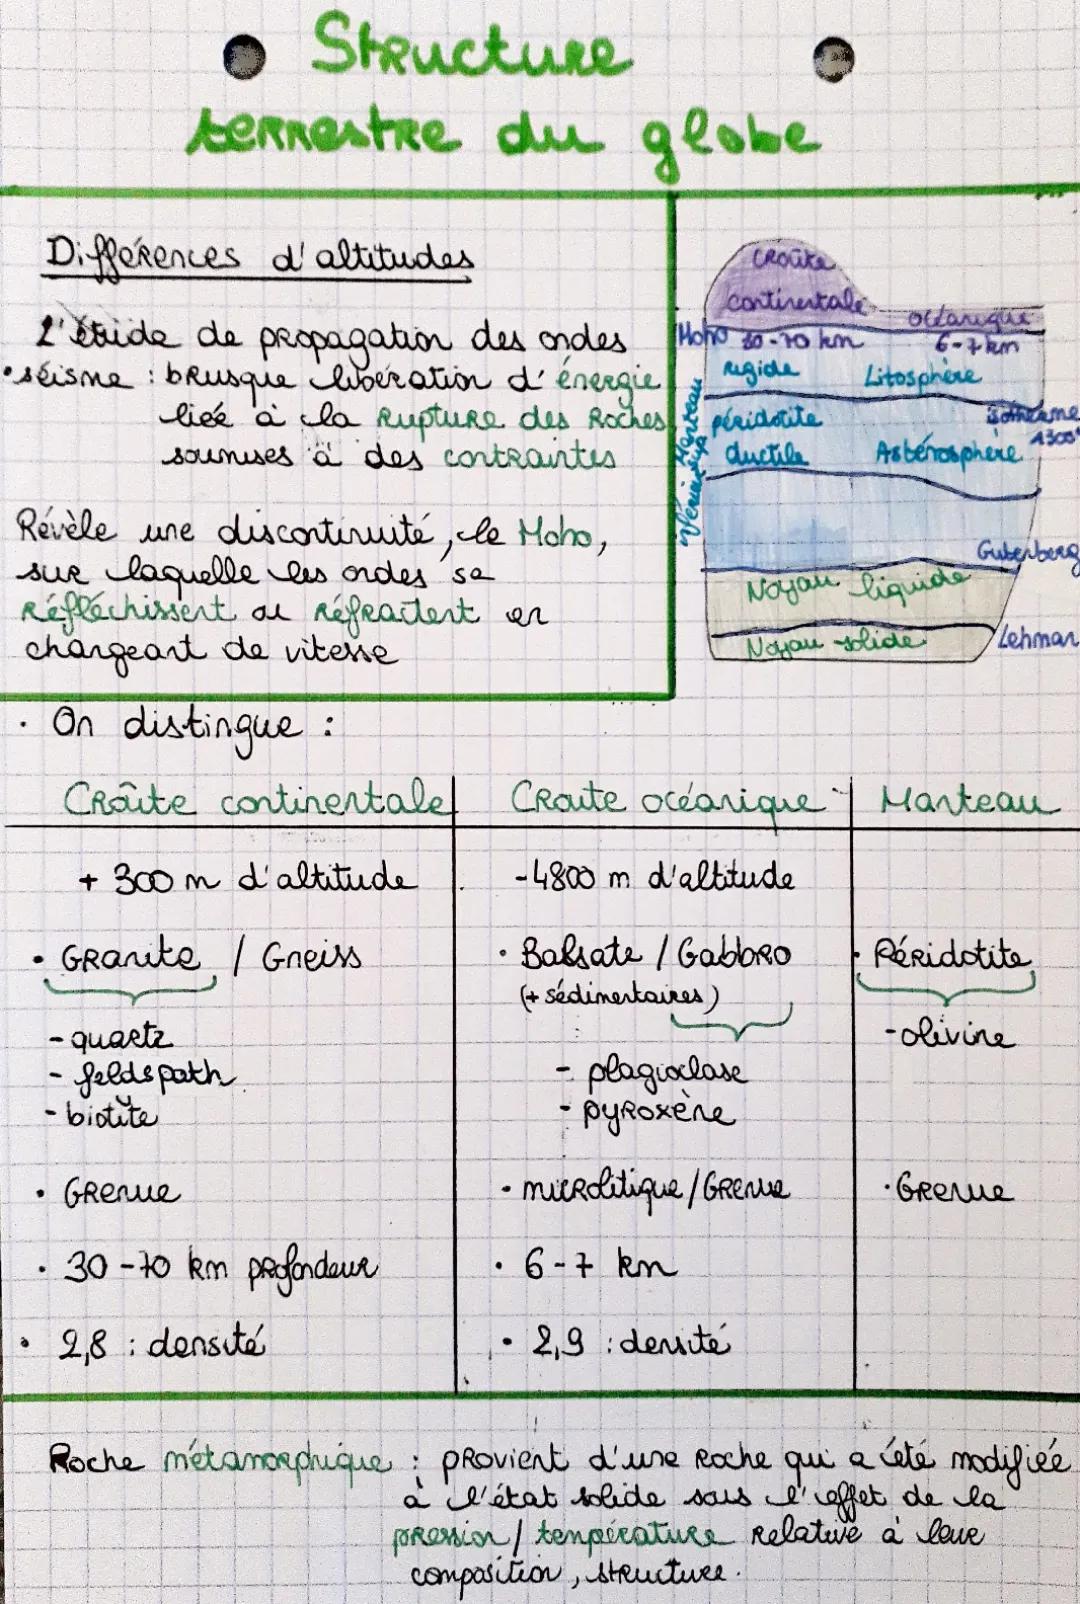 Structure
terrestre du globe
Différences d'altitudes
L'étude de propagation des ondes
• séisme : brusque libération d'énergie
liée à la rupture des Roches
soumises à des contraintes
Révèle une discontinuité, le Moho,
sur laquelle les ondes se
réfléchissent ou réfractent en
changeant de vitesse
Croûte
continentale
océanique
Moho 30-70 km
6-7 km
rigide
Litosphère
péridotite
isotherme
1300°
ductile
Asténosphère
Manteau
inférieur
Gutenberg
Noyau liquide
Noyau solide
Lehman
• On distingue :
Croûte continentale
Croute océanique
Manteau
+ 300 m d'altitude
-4800 m d'altitude
• Granite / Gneiss
• Balsate / Gabbro
• Péridotite
(+ sédimentaires)
- quartz
- feldspath
- biotite
- plagioclase
- pyroxène
- olivine
• Grenue
• microlitique / Grenue
• Grenue
• 30-70 km profondeur
• 6-7 km
• 2,8 : densité
• 2,9 : densité
Roche métamorphique : provient d'une roche qui a été modifiée
à l'état solide sous l'effet de la
pression / température relative à leur
composition, structure.